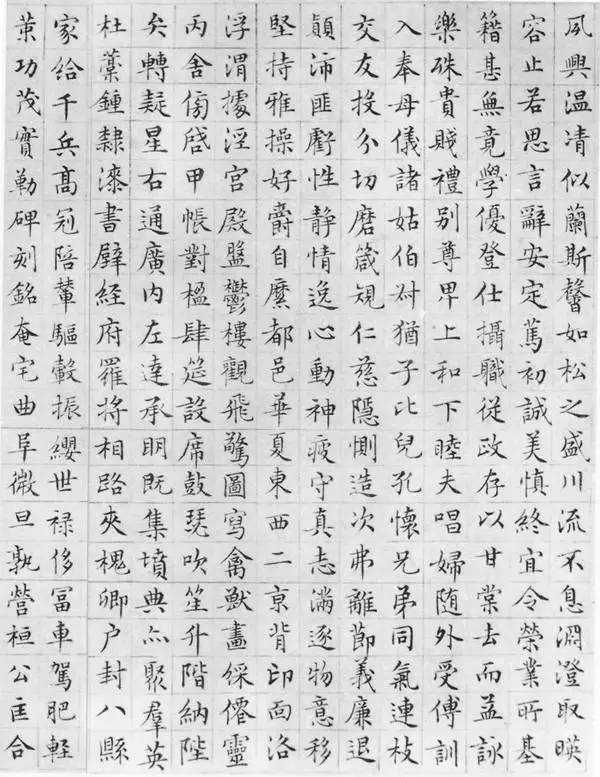 夙興温凊似蘭斯馨如松之盛川流不息淵澄取暎
容止若思言辭安定篤初誠美慎終宜令榮業所基
籍甚無竟學優登仕攝職從政存以甘棠去而益詠
樂殊貴賤禮別尊卑上和下睦夫唱婦随外受傅訓
入奉母儀諸姑伯叔猶子比兒孔懷兄弟同氣連枝
交友投分切磨箴規仁慈隱惻造次弗離節義廉退
顛沛匪虧性静情逸心動神疲守真志滿逐物意移
堅持雅操好爵自縻都邑華夏東西二京背邙面洛
浮渭據涇宮殿盤鬱樓觀飛驚圖寫禽獸畫綵僊靈
丙舍傍啓甲帳對楹肆筵設席鼓瑟吹笙升階納陛
弁轉疑星右通廣内左達承明既集墳典亦聚羣英
杜藁鍾隸漆書壁經府羅將相路夾槐卿户封八縣
家給千兵高冠陪輦驅轂振纓世禄侈富車駕肥輕
策功茂實勒碑刻銘奄宅曲阜微旦孰營桓公匡合